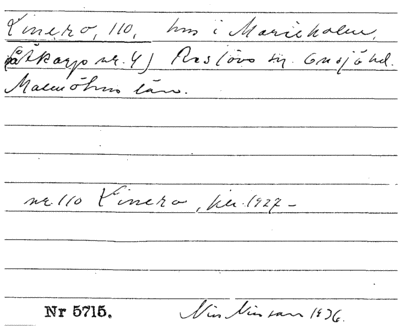 Kinero, 110, hus i Marieholm,
(Åkarp nr. 4) Reslövs sn. Onsjö hd.
Malmöhus län.
nr. 110 Kinero, jur. 1927–
Nr 5715. Nils Nilsson 1936.